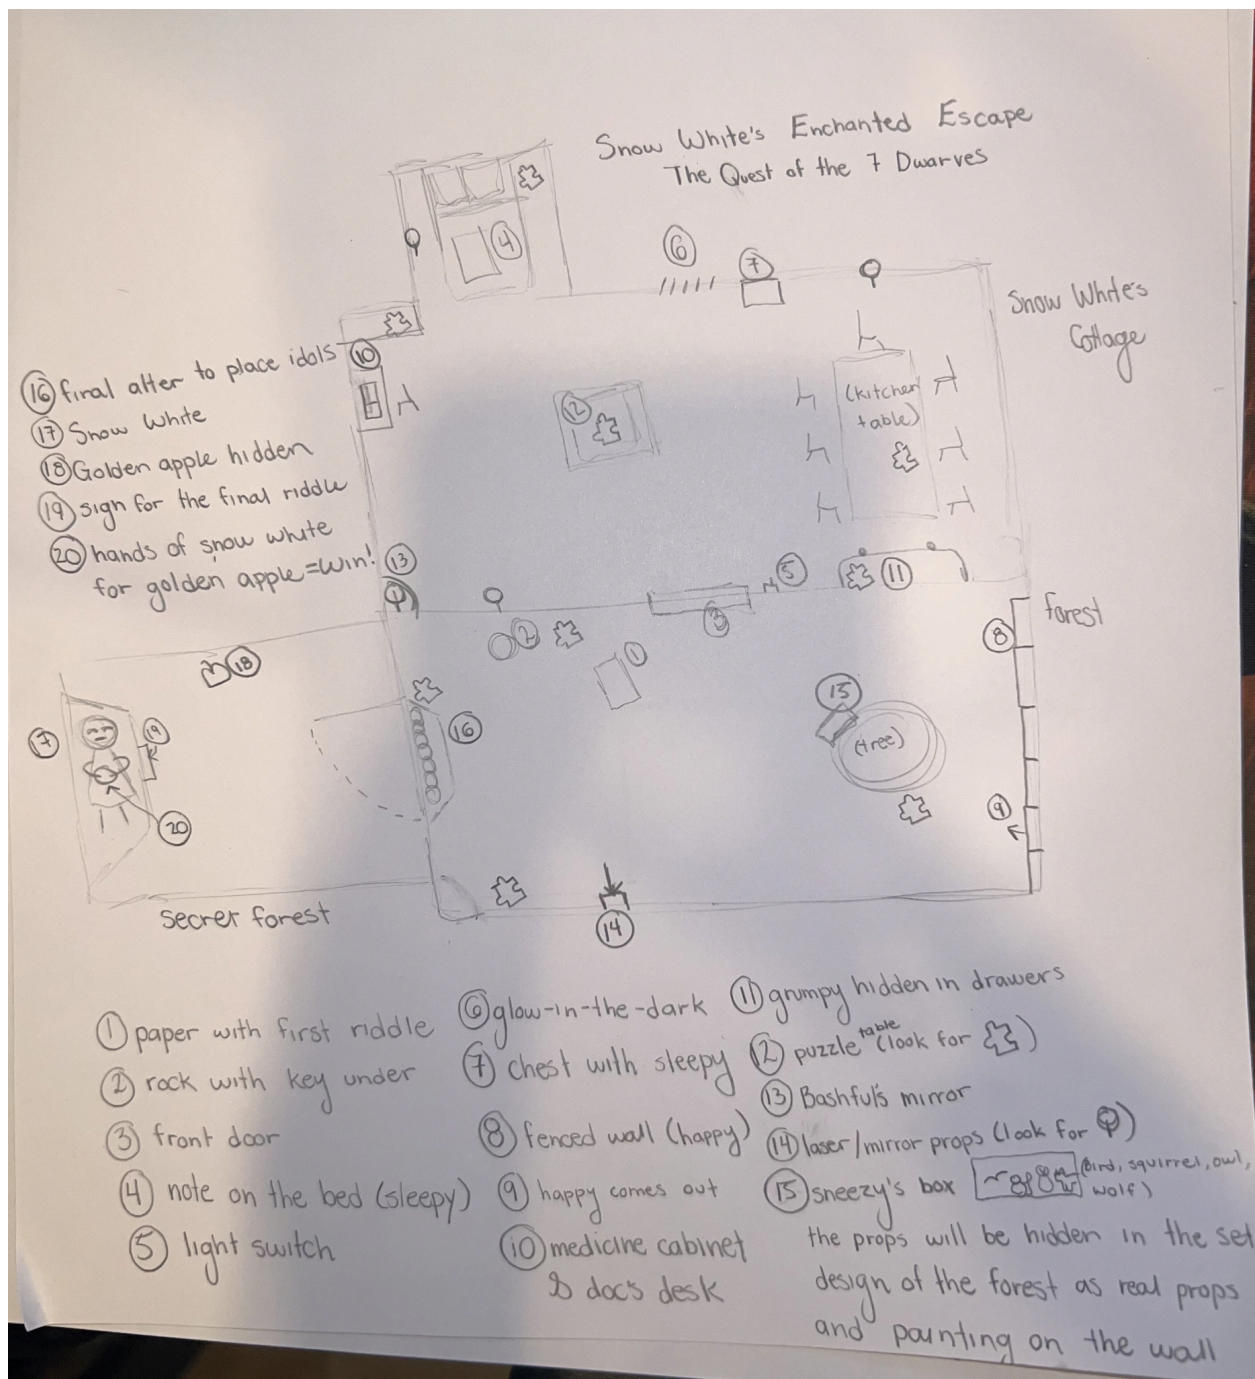 Snow White's Enchanted Escape
The Quest of the 7 Dwarves
4
6
7
Snow White's
Cottage
10
16 final alter to place idols
17 Snow White
18 Golden apple hidden
19 sign for the final riddle
20 hands of snow white
for golden apple=win!
12
(kitchen
table)
13
5
11
3
forest
8
2
1
18
15
(tree)
16
17
19
20
9
14
secret forest
1 paper with first riddle
2 rock with key under
3 front door
4 note on the bed (sleepy)
5 light switch
6 glow-in-the-dark
7 chest with sleepy
8 fenced wall (happy)
9 happy comes out
10 medicine cabinet
& doc's desk
11 grumpy hidden in drawers
12 puzzle table (look for )
13 Bashful's mirror
14 laser/mirror props (look for )
15 sneezy's box (bird, squirrel, owl,
wolf)
the props will be hidden in the set
design of the forest as real props
and painting on the wall